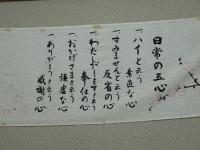 日常の五心
一ハイと云う素直な心
一すみませんと云う反省の心
一わたしがしますと云う奉仕の心
一おかげさまと云う謙虚な心
一ありがとうと云う感謝の心